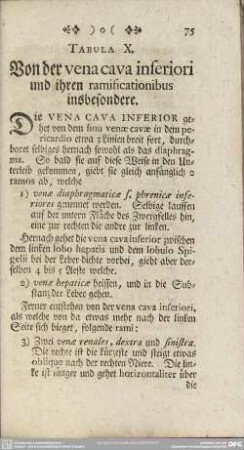 )o( 75
TABULA X.
Von der vena cava inferiori
und ihren ramificationibus
insbesondere.
Die VENA CAVA INFERIOR ge-
het von dem sinu venæ cavæ in dem pe-
ricardio etwa 2 Linien breit fort, durch-
boret selbiges hernach sowohl als das diaphrag-
ma. So bald sie auf diese Weise in den Un-
terleib gekommen, giebt sie gleich anfänglich 2
ramos ab, welche
1) venæ diaphragmaticæ s. phrenicæ infe-
riores genennet werden. Selbige lauffen
auf der untern Fläche des Zwergfelles hin,
eine zur rechten die andre zur linken.
Hernach gehet die vena cava inferior zwischen
dem linken lobo hepatis und dem lobulo Spi-
gelii bei der Leber dichte vorbei, giebt aber der-
selben 4 bis 5 Aeste welche.
2) venæ hepaticæ heissen, und in die Sub-
stanz der Leber gehen.
Ferner entstehen von der vena cava inferiori,
als welche von da etwas mehr nach der linken
Seite sich bieget, folgende rami:
3) Zwei venæ renales, dextra und sinistra.
Die rechte ist die kürzeste und steigt etwas
oblique nach der rechten Niere. Die lin-
ke ist länger und gehet horizontaliter über
die